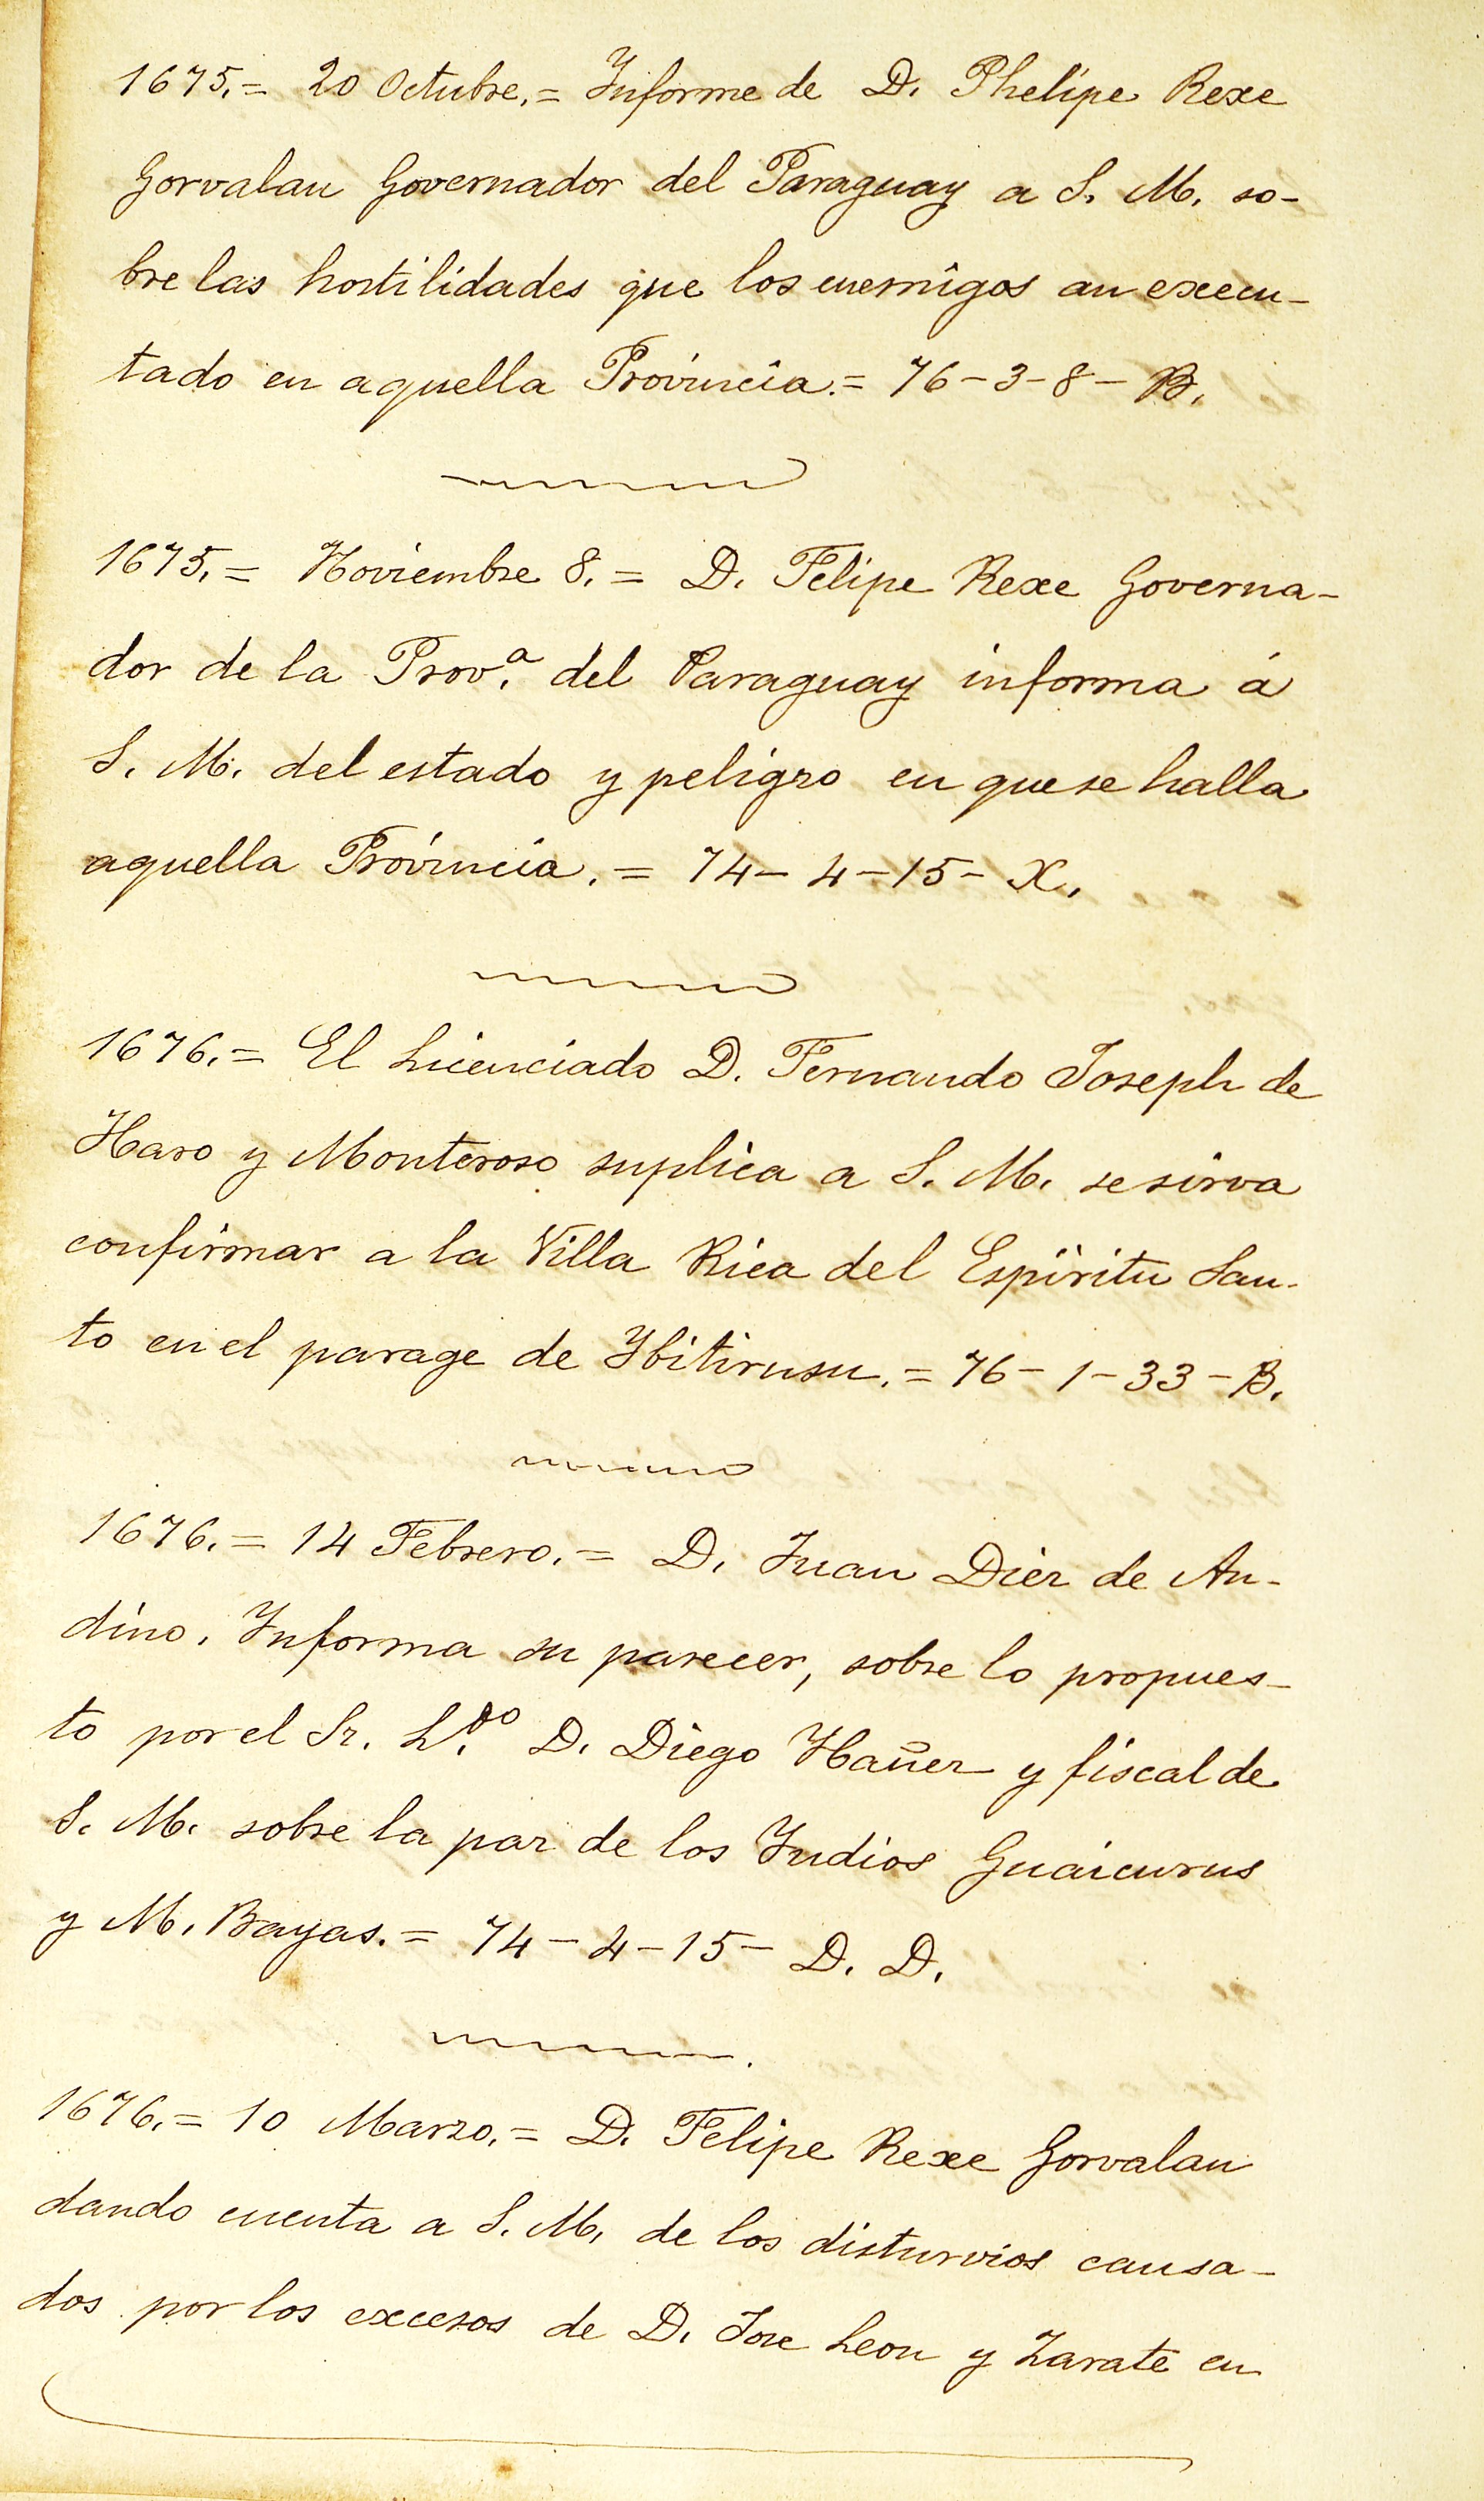 1675.= 20 Octubre.= Informe de D. Phelipe Rexe
Gorvalan Governador del Paraguay a S. M. so-
bre las hostilidades que los enemigos an execu-
tado en aquella Provincia.= 76-3-8-B.
1675.= Noviembre 8.= D. Felipe Rexe Governa-
dor de la Prov.ª del Paraguay informa á
S. M. del estado y peligro en que se halla
aquella Provincia.= 74-4-15-X.
1676.= El Licenciado D. Fernando Joseph de
Haro y Monteroso suplica a S. M. se sirva
confirmar a la Villa Rica del Espiritu San-
to en el parage de Ybitirusu.= 76-1-33-B.
1676.= 14 Febrero.= D. Juan Diez de An-
dino. Informa su parecer, sobre lo propues-
to por el Sr. L.do D. Diego Ybañez y fiscal de
S. M. sobre la paz de los Indios Guaicurus
y M. Bayas.= 74-4-15-D. D.
1676.= 10 Marzo.= D. Felipe Rexe Gorvalan
dando cuenta a S. M. de los disturvios causa-
dos por los excesos de D. Jose Leon y Zarate en